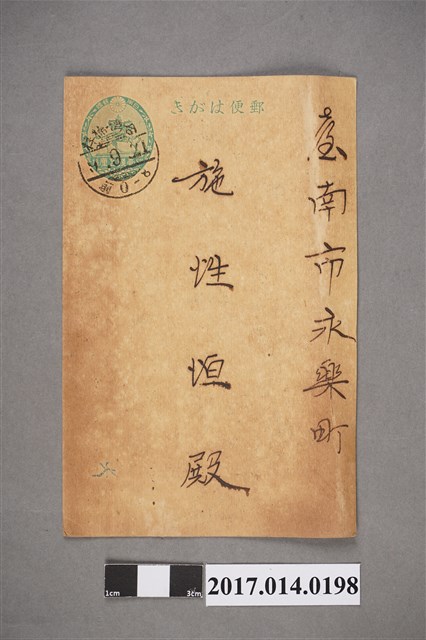 郵便はがき
臺南市永樂町
施性恒殿
1cm
3cm
2017.014.0198